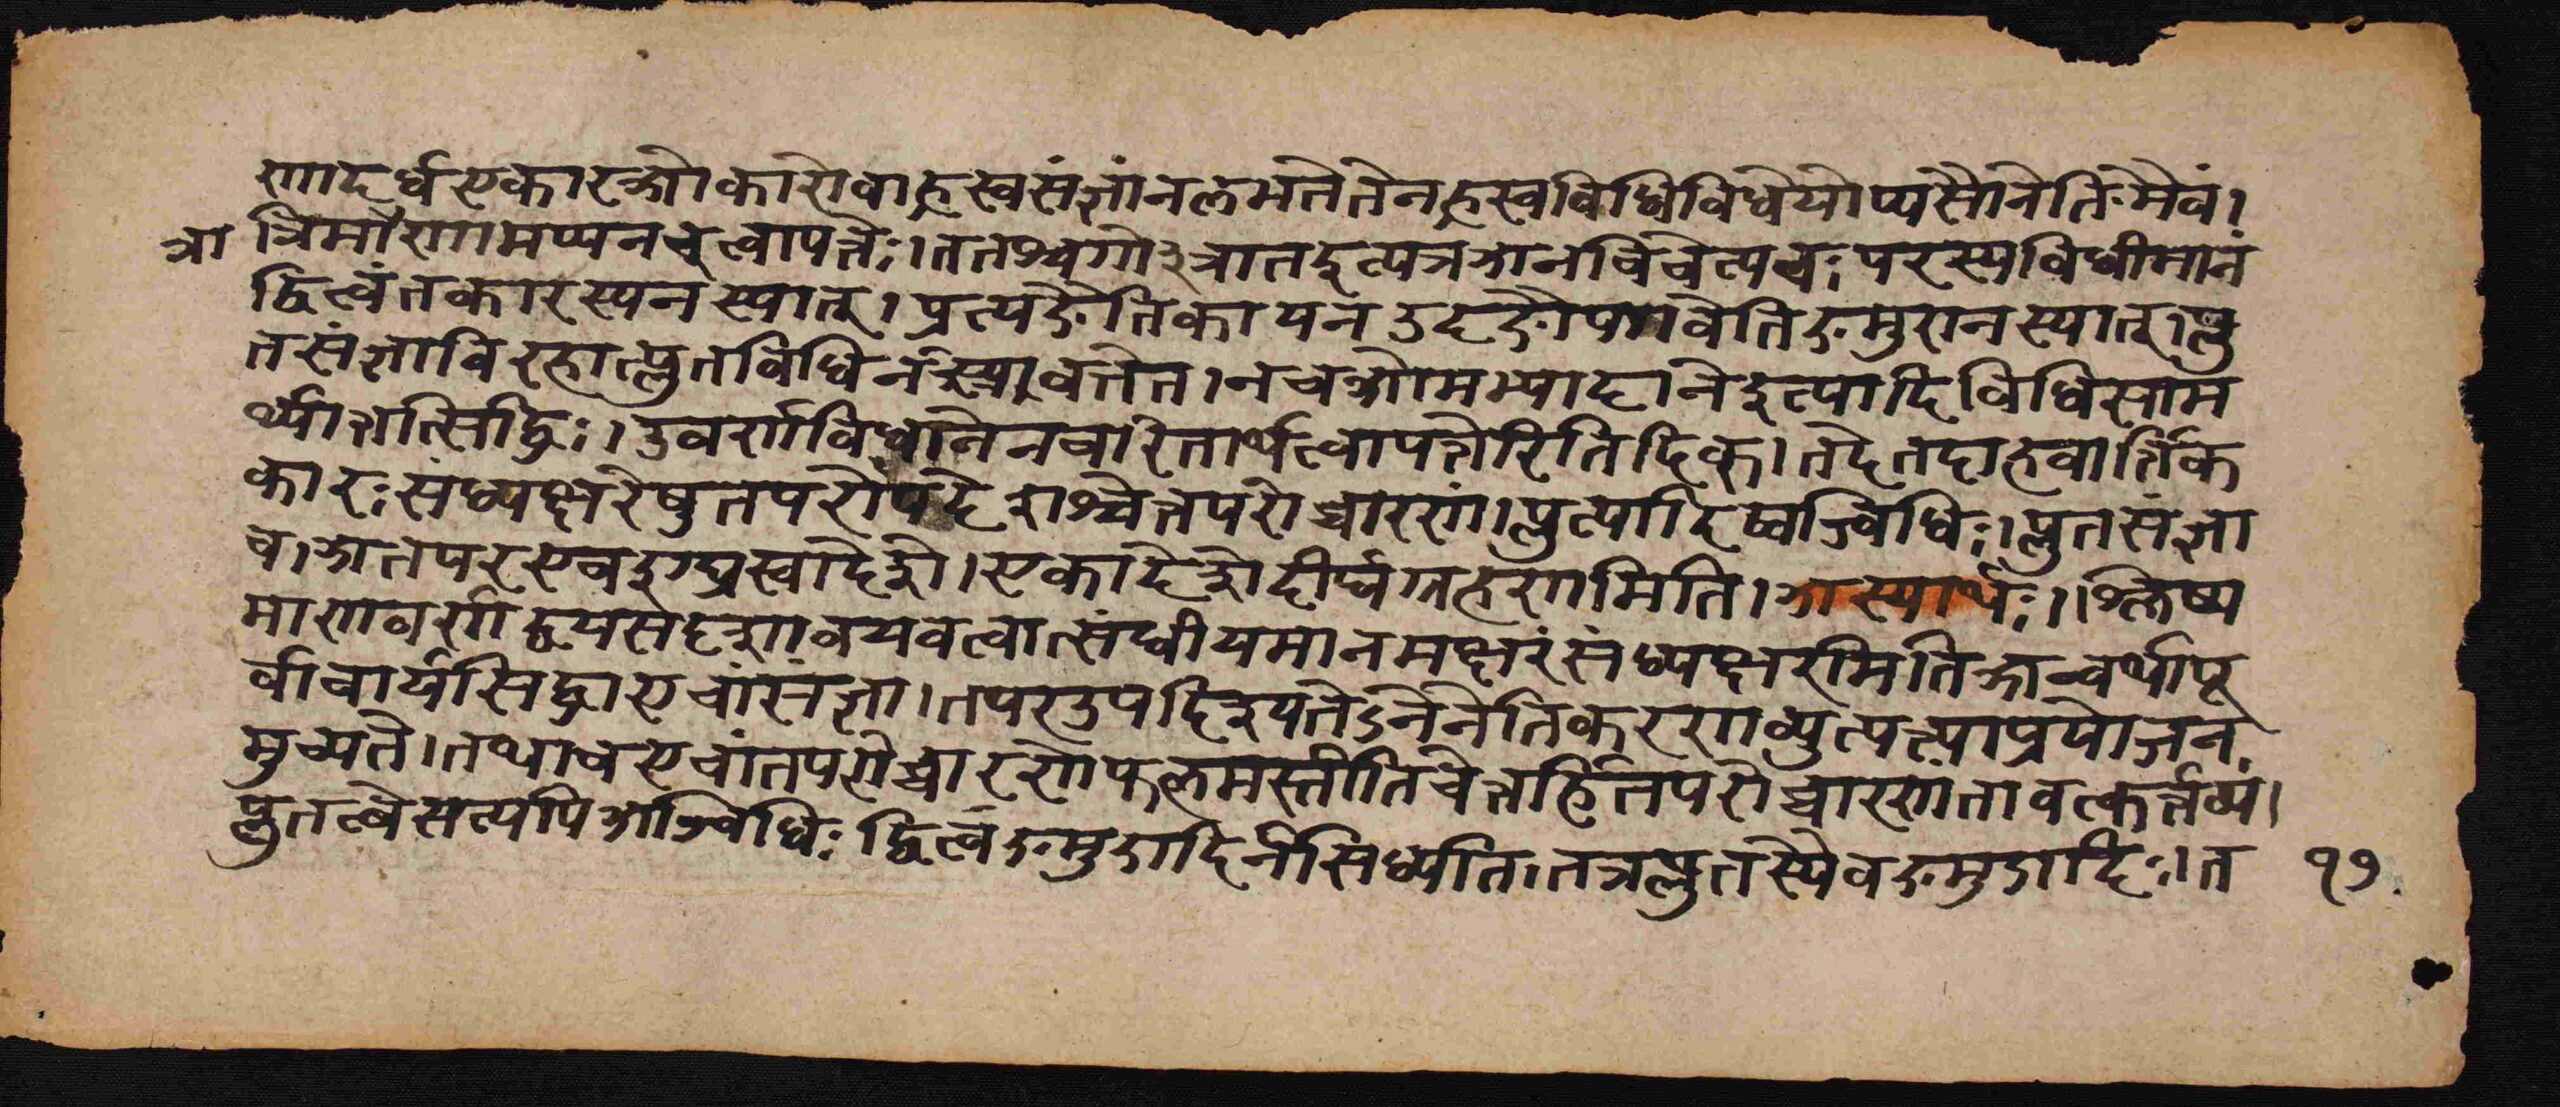 णादर्ध एकार ओकारो वा ह्रस्वसंज्ञां न लभते तेन ह्रस्वविधिविधेयोप्यसौ नेति मैवं।
त्रा त्रिमात्राणामप्यनच्त्वापत्तेः। ततश्च गो३त्रात इत्यत्र अनचि चेत्यचः परस्य विधीमानं
द्वित्वं तकारस्य न स्यात्। प्रत्यङ्ङैतिकायन उदङ्ङौपगवेति ङमुडान स्यात्। प्लु
तसंज्ञाविरहात्प्लुतविधिर्न स्यावर्त्तेत। न च ओमभ्यादाने इत्यादिविधिसाम
र्थ्यात्तत्सिद्धिः। उवर्णविधानेन चरितार्थत्वापत्तेरिति दिक्। तदेतदाह वार्त्तिक
कारः संध्यक्षरेषु तपरोपदेशश्चेत्तपरोच्चारणं। प्लुत्यादिष्वज्विधिः। प्लुतसंज्ञा
च। अतपर एच इग्घ्रस्वादेशे। एकादेशे दीर्घग्रहणमिति। अस्यार्थः।। श्लिष्य
माणवर्णद्वयसदृशावयवत्वात्संधीयमानमक्षरं संध्यक्षरमिति अन्वर्था पू
र्वाचार्यसिद्धा एचां संज्ञा। तपर उपदिश्यतेऽनेनेति करणव्युत्पत्त्या प्रयोजन
मुच्यते। तथाच एचां तपरोच्चारणे फलमस्तीति चेत्तर्हि तपरोच्चारणं तावत्कर्त्तव्यं।
प्लुतत्वे सत्यपि अज्विधिः द्वित्वं ङमुडादिर्न सिध्यति। तत्र प्लुतस्यैव ङमुडादिः। त १७